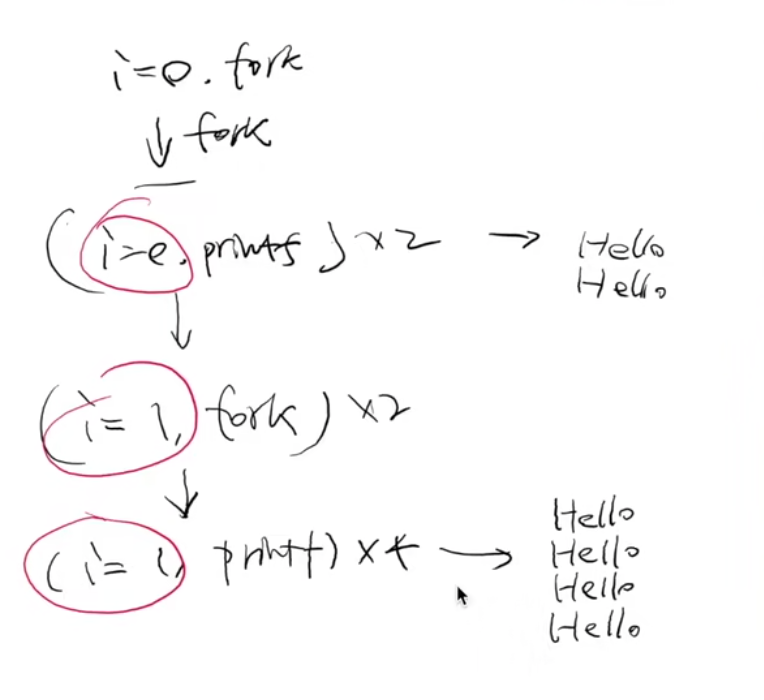 i=0. fork
↓ fork
(i=0. printf) ×2 → Hello
Hello
↓
(i=1, fork) ×2
↓
(i=1, printf) ×4 → Hello
Hello
Hello
Hello